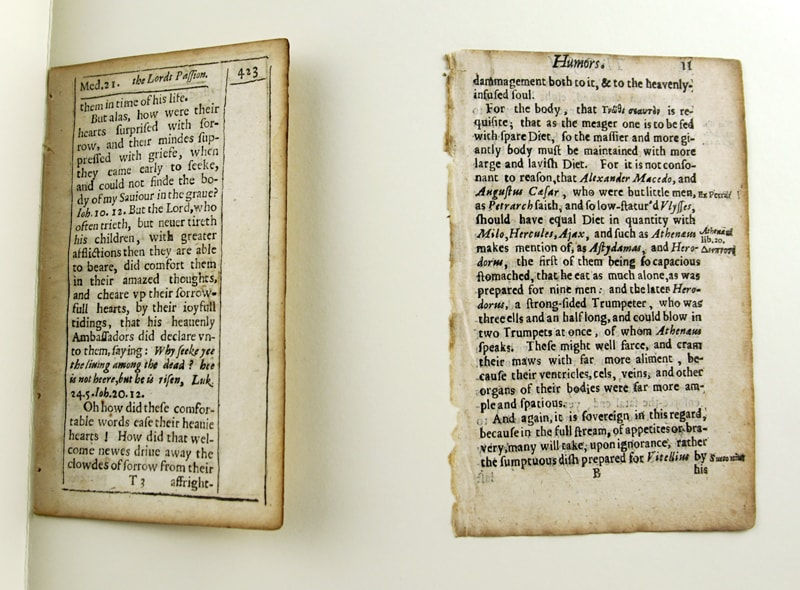 Med.21. the Lords Paſſion. 423
them in time of his life.
But alas, how were their
hearts ſurpriſed with ſor-
row, and their mindes ſup-
preſſed with griefe, when
they came early to ſeeke,
and could not finde the bo-
dy of my Sauiour in the graue?
Ioh. 10. 12. But the Lord, who
often trieth, but neuer tireth
his children, with greater
afflictions then they are able
to beare, did comfort them
in their amazed thoughts,
and cheare vp their ſorrow-
full hearts, by their ioyfull
tidings, that his heauenly
Ambaſſadors did declare vn-
to them, ſaying: Why ſeeke yee
the liuing among the dead? hee
is not heere, but he is riſen, Luk.
24.5. Ioh. 20. 12.
Oh how did theſe comfor-
table words eaſe their heauie
hearts! How did that wel-
come newes driue away the
clowdes of ſorrow from their
T 3 affright-
Humors. 11
dammagement both to it, & to the heavenly-
infuſed ſoul.
For the body, that Γνῶθι σεαυτὸν is re-
quiſite; that as the meager one is to be fed
with ſpare Diet, ſo the maſſier and more gi-
antly body muſt be maintained with more
large and laviſh Diet. For it is not conſo-
nant to reaſon, that Alexander Macedo, and
Auguſtus Cæſar, who were but little men,
as Petrarch ſaith, and ſo low-ſtatur'd Vlyſſes,
ſhould have equal Diet in quantity with
Milo, Hercules, Ajax, and ſuch as Athenæus
makes mention of, as Aſtydamas, and Hero-
dorus, the firſt of them being ſo capacious
ſtomached, that he eat as much alone, as was
prepared for nine men: and the later Hero-
dorus, a ſtrong-ſided Trumpeter, who was
three ells and an half long, and could blow in
two Trumpets at once, of whom Athenæus
ſpeaks. Theſe might well farce, and cram
their maws with far more aliment, be-
cauſe their ventricles, cels, veins, and other
organs of their bodies were far more am-
ple and ſpatious.
And again, it is ſovereign in this regard,
becauſe in the full ſtream, of appetites or bra-
very, many will take, upon ignorance, rather
the ſumptuous diſh prepared for Vitellius by
B his
Ex Petrar.
Athenæus
lib. 20.